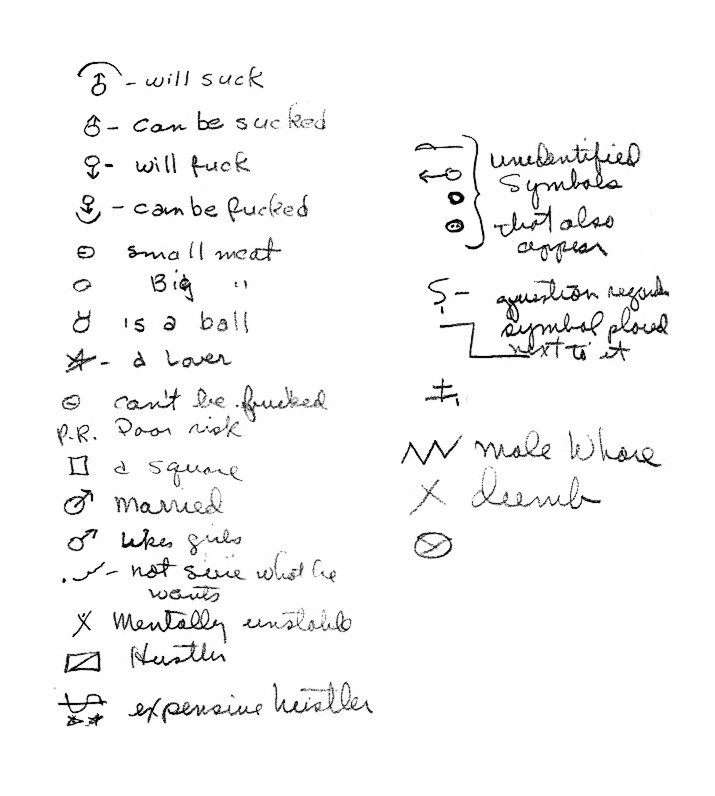 - will suck
- can be sucked
- will fuck
- can be fucked
small meat
Big "
is a ball
- a Lover
can't be frucked
P.R. Poor risk
a square
married
likes girls
- not sure what he
wants
Mentally unstable
Hustler
expensive hustler
unidentified
Symbols
that also
appear
- question regards
symbol placed
next to it
male Whore